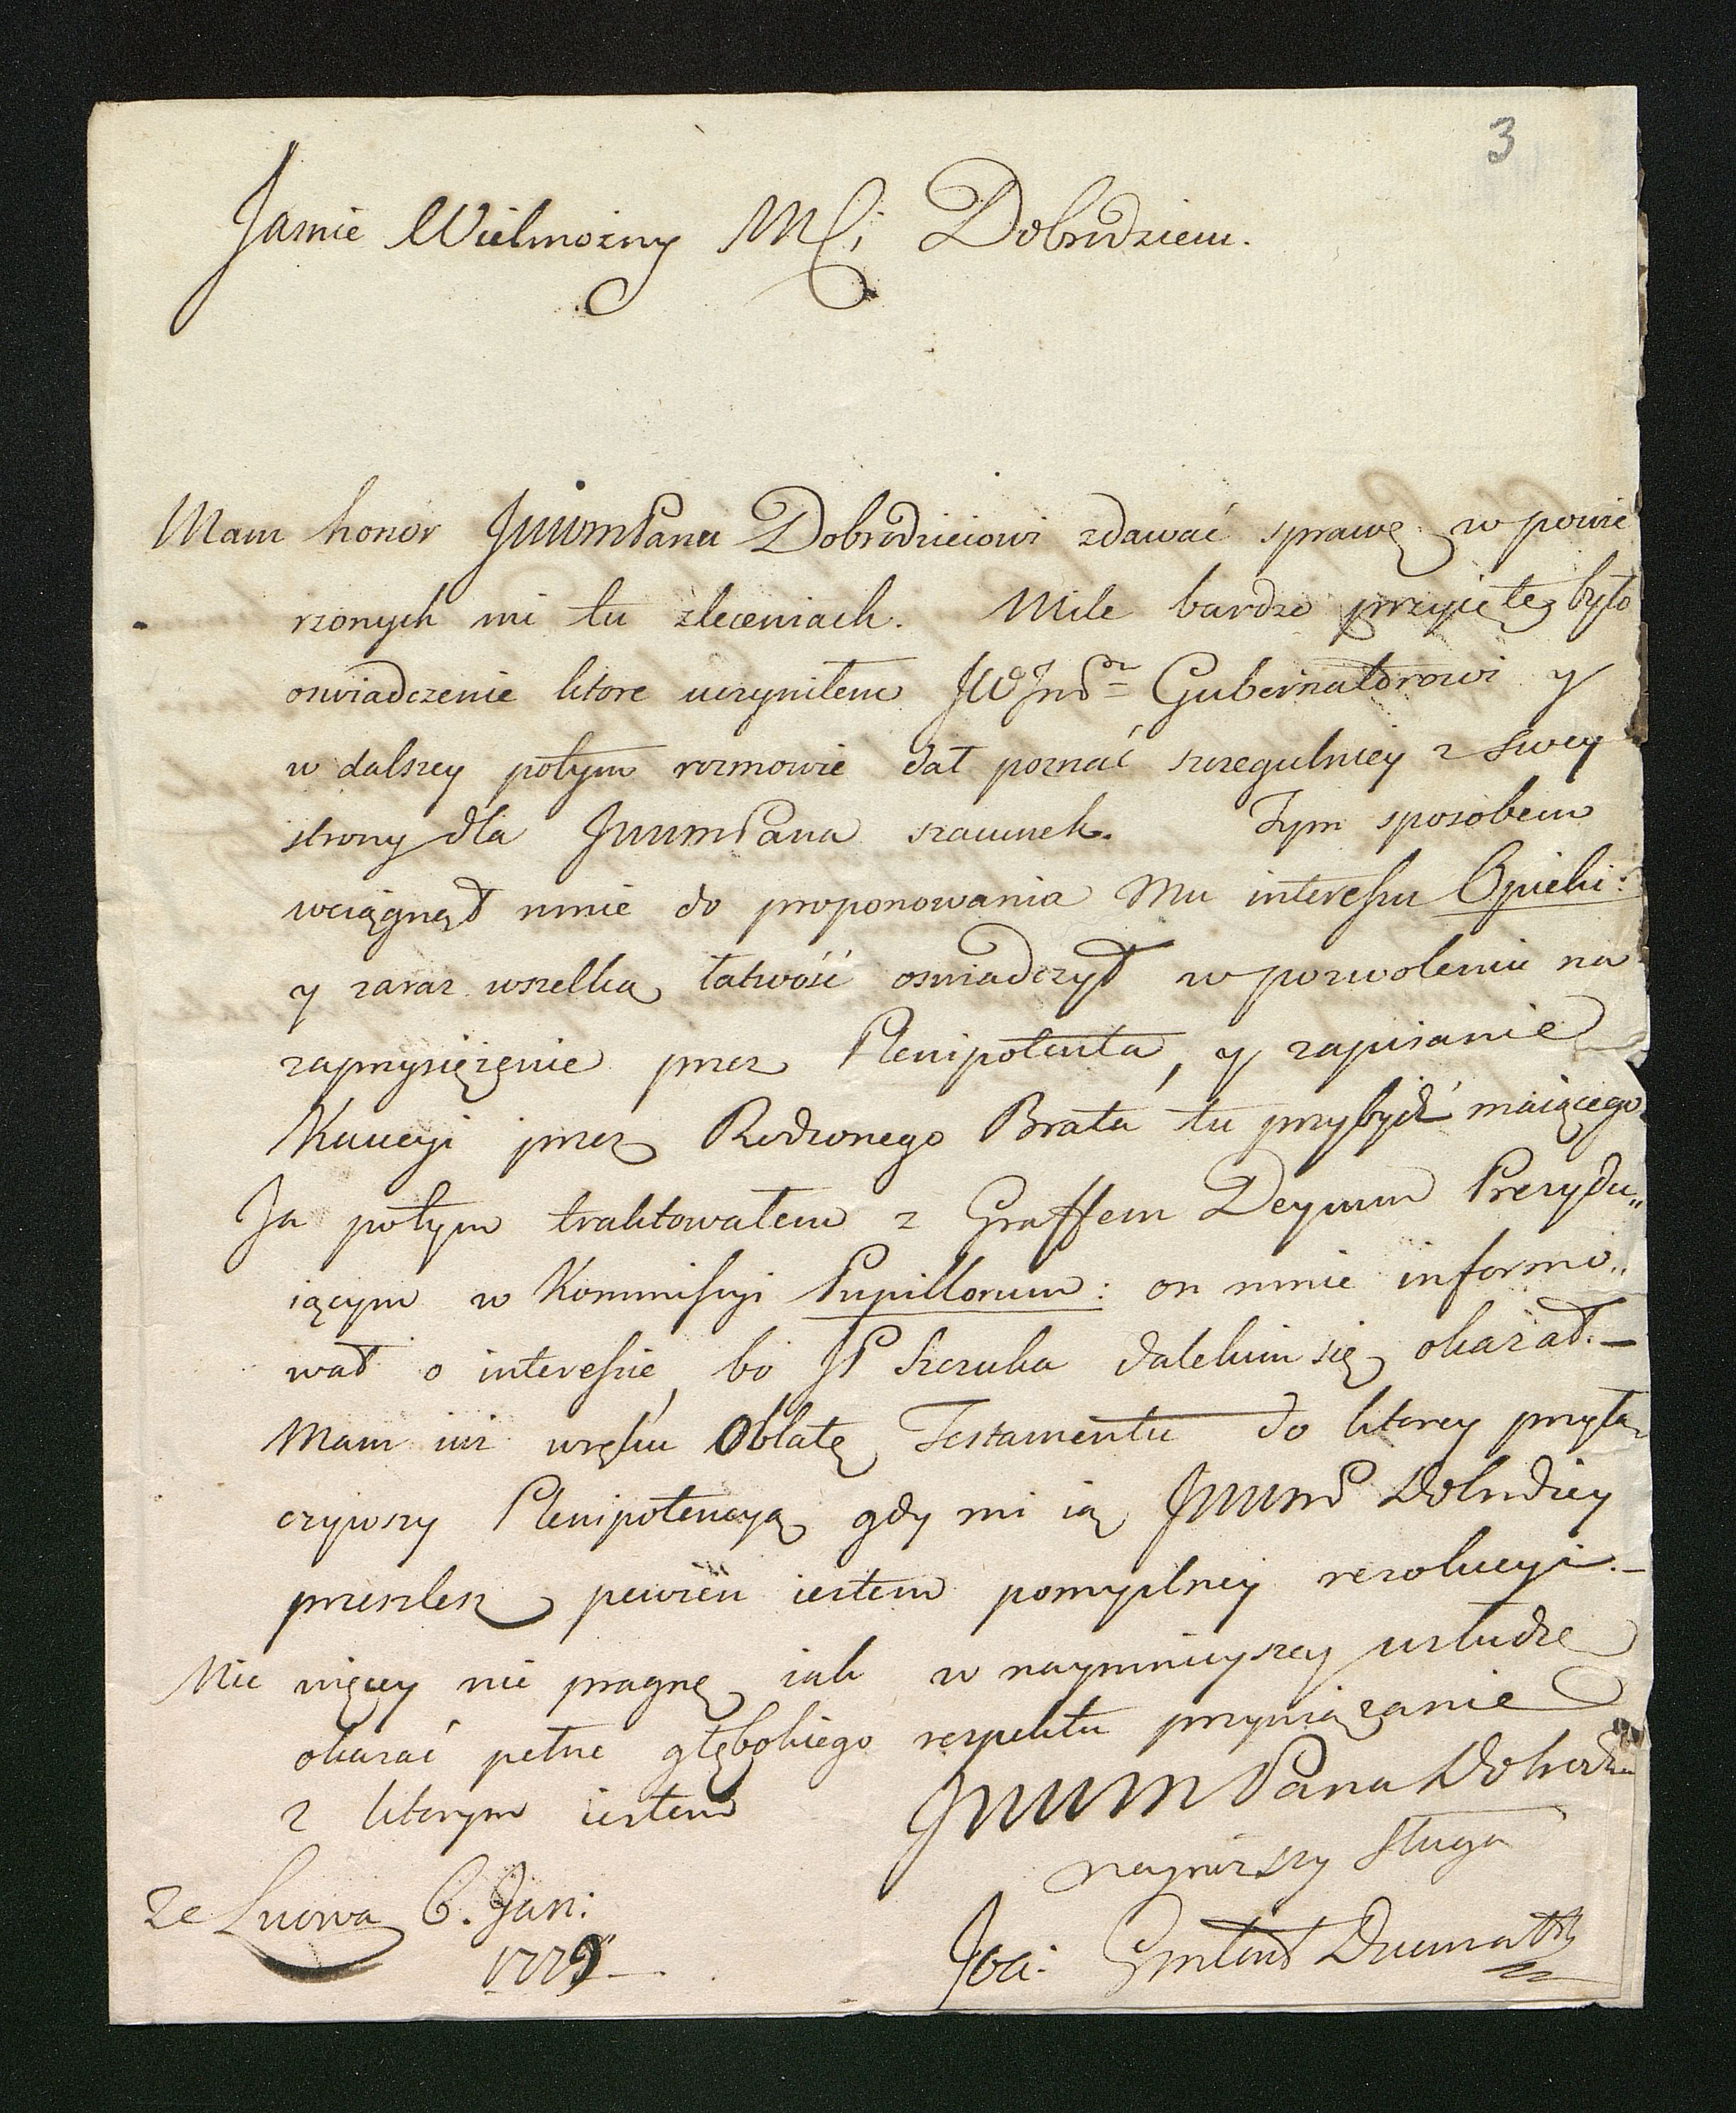 3
Jasnie Wielmożny Mci Dobrodzieiu.
Mam honor JWWMPana Dobrodzieiowi zdawać sprawę w powie
rzonych mi tu zleceniach. Mile bardzo przyięte było
oswiadczenie ktore uczyniłem Gubernatorowi y
w dalszey potym rozmowie dał poznać szczegulniey z swey
strony dla JWWMPana szacunek. Tym sposobem
wciągnął mnie do proponowania Mu interessu Opieki:
y zaraz wszelką łatwość oswiadczył w pozwoleniu na
zaprzysiężenie przez Plenipotenta, y zapisanie
Kaucyi przez Rodzonego Brata tu przybydź maiącego
Ja potym traktowałem z Graffem Deymm Prezydu„
iącym w Kommissyi Pupillorum: on mnie informo„
wał o interessie, bo JP Szczuka dalekim się okazał.—
Mam iuż wręku Oblatę Testamentu do ktorey przyłą„
czywszy Plenipotencyą gdy mi ią JWWMP Dobrodziey
przeszlesz pewien iestem pomyslney rezolucyi.—
Nic więcy nie pragnę iak w naymnieyszey usłudze
okazać pełne głębokiego respektu przywiązanie
z ktorym iestem JWWMPana Dobrodzieia
nayniższy sługa
Ze Lwowa 6. Jan:
1779